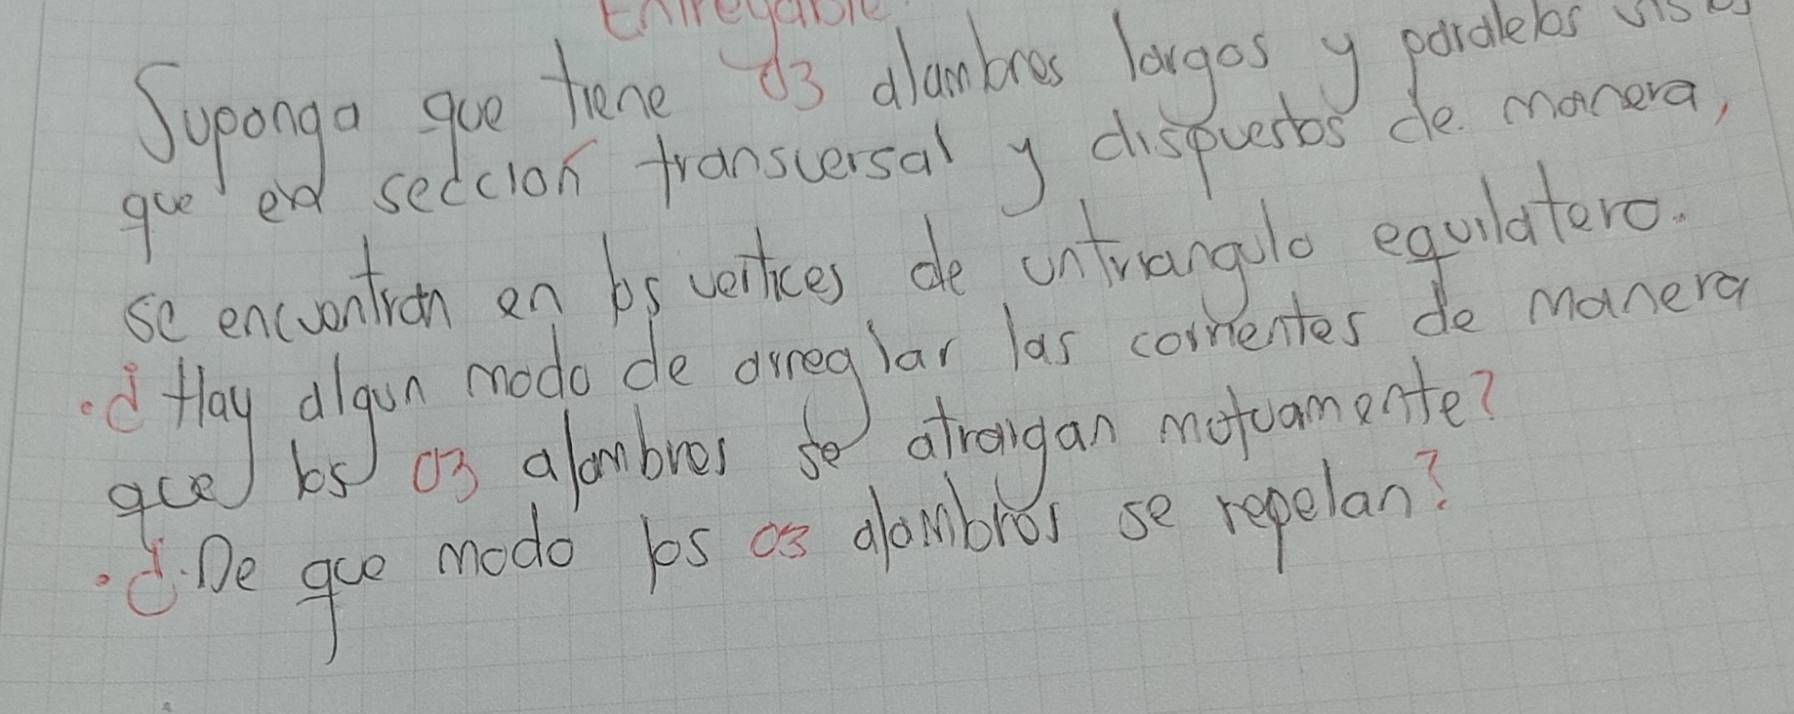 Entregable
Suponga que tiene 03 alambres largos y paralelos vistos
que en sección transversal y dispuestos de manera,
se encuentran en los vertices de untriangulo equilatero.
• ¿ Hay algun modo de arreglar las corrientes de manera
que los 03 alambres se atraigan mutuamente?
• ¿ De que modo los 03 alambres se repelan?